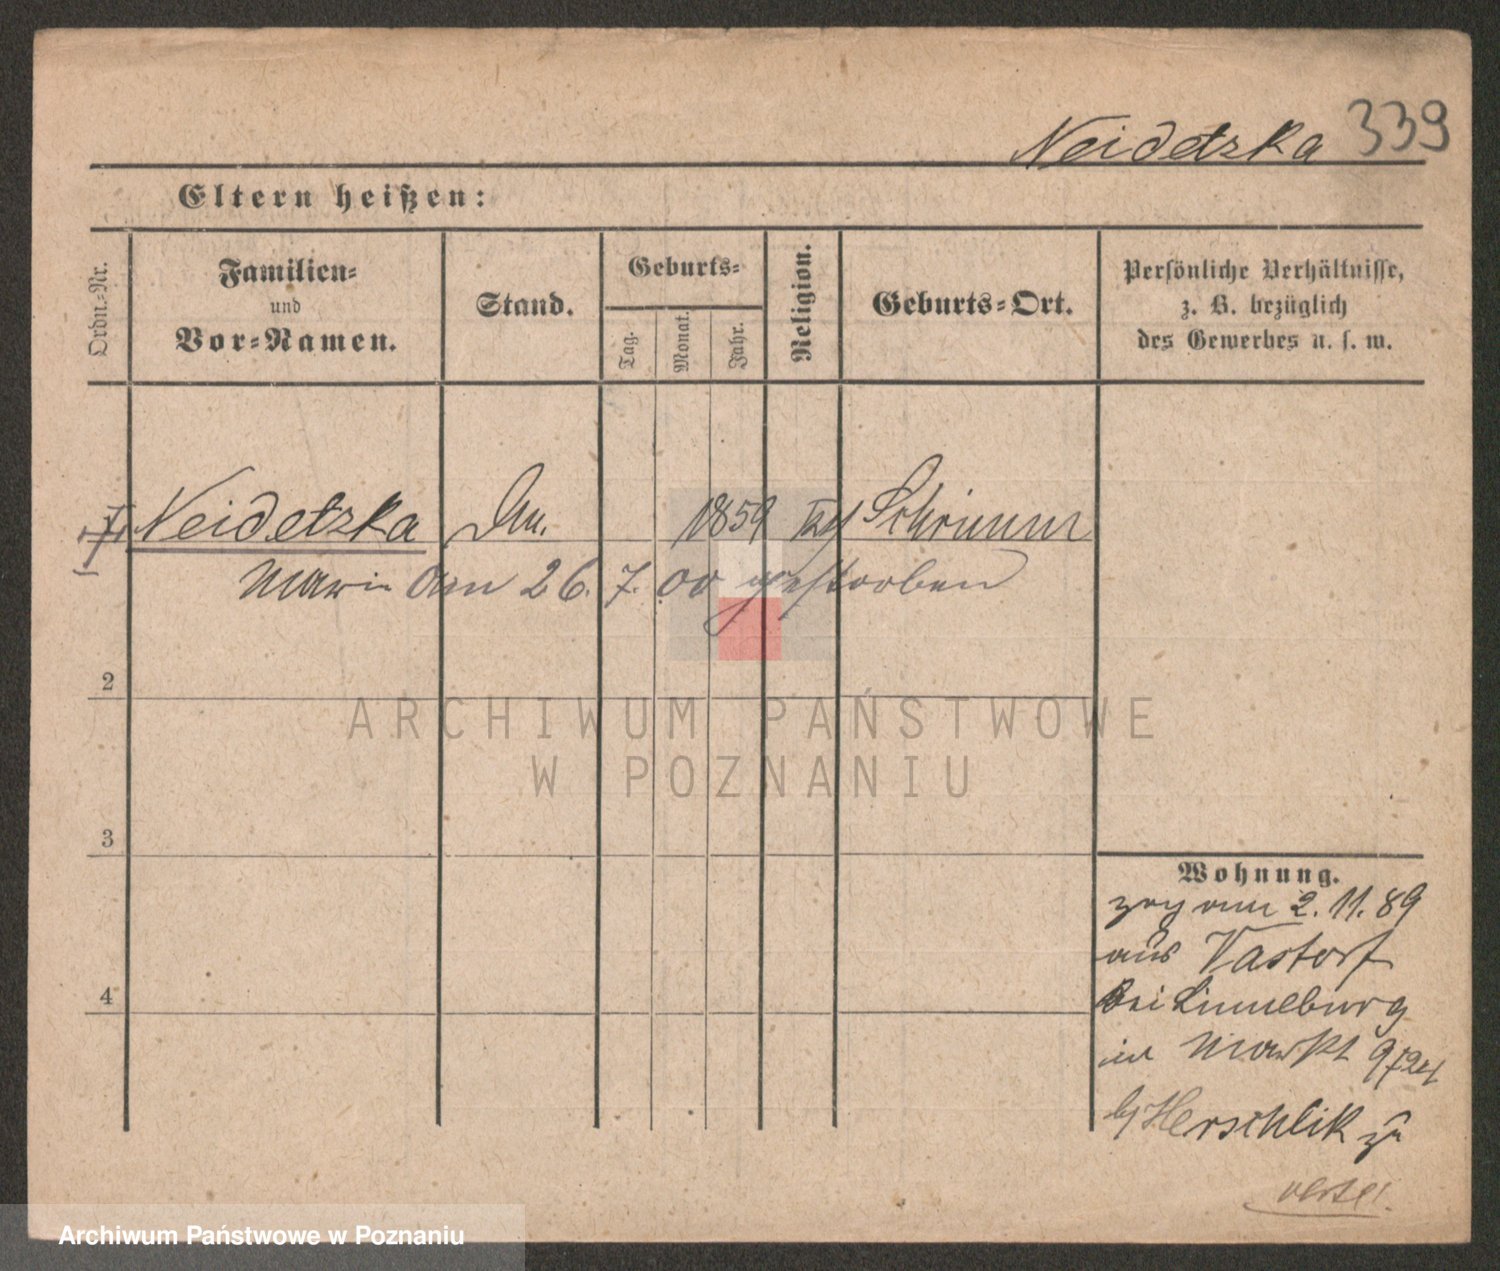 Neidetzka 339
Eltern heißen:
Ordn.-Nr.
Familien-
und
Vor-Namen.
Stand.
Geburts-
Tag.
Monat.
Jahr.
Religion.
Geburts-Ort.
Persönliche Verhältnisse,
z. B. bezüglich
des Gewerbes u. s. w.
Neidetzka 1859 Schrimm
Marie am 26. 7. 00 gestorben
2
3
4
Wohnung.
zog am 2. 11. 89
aus Vastorf
bei Lüneburg
Markt 9/24
Herschlik zu
verte!
ARCHIWUM PAŃSTWOWE
W POZNANIU
Archiwum Państwowe w Poznaniu